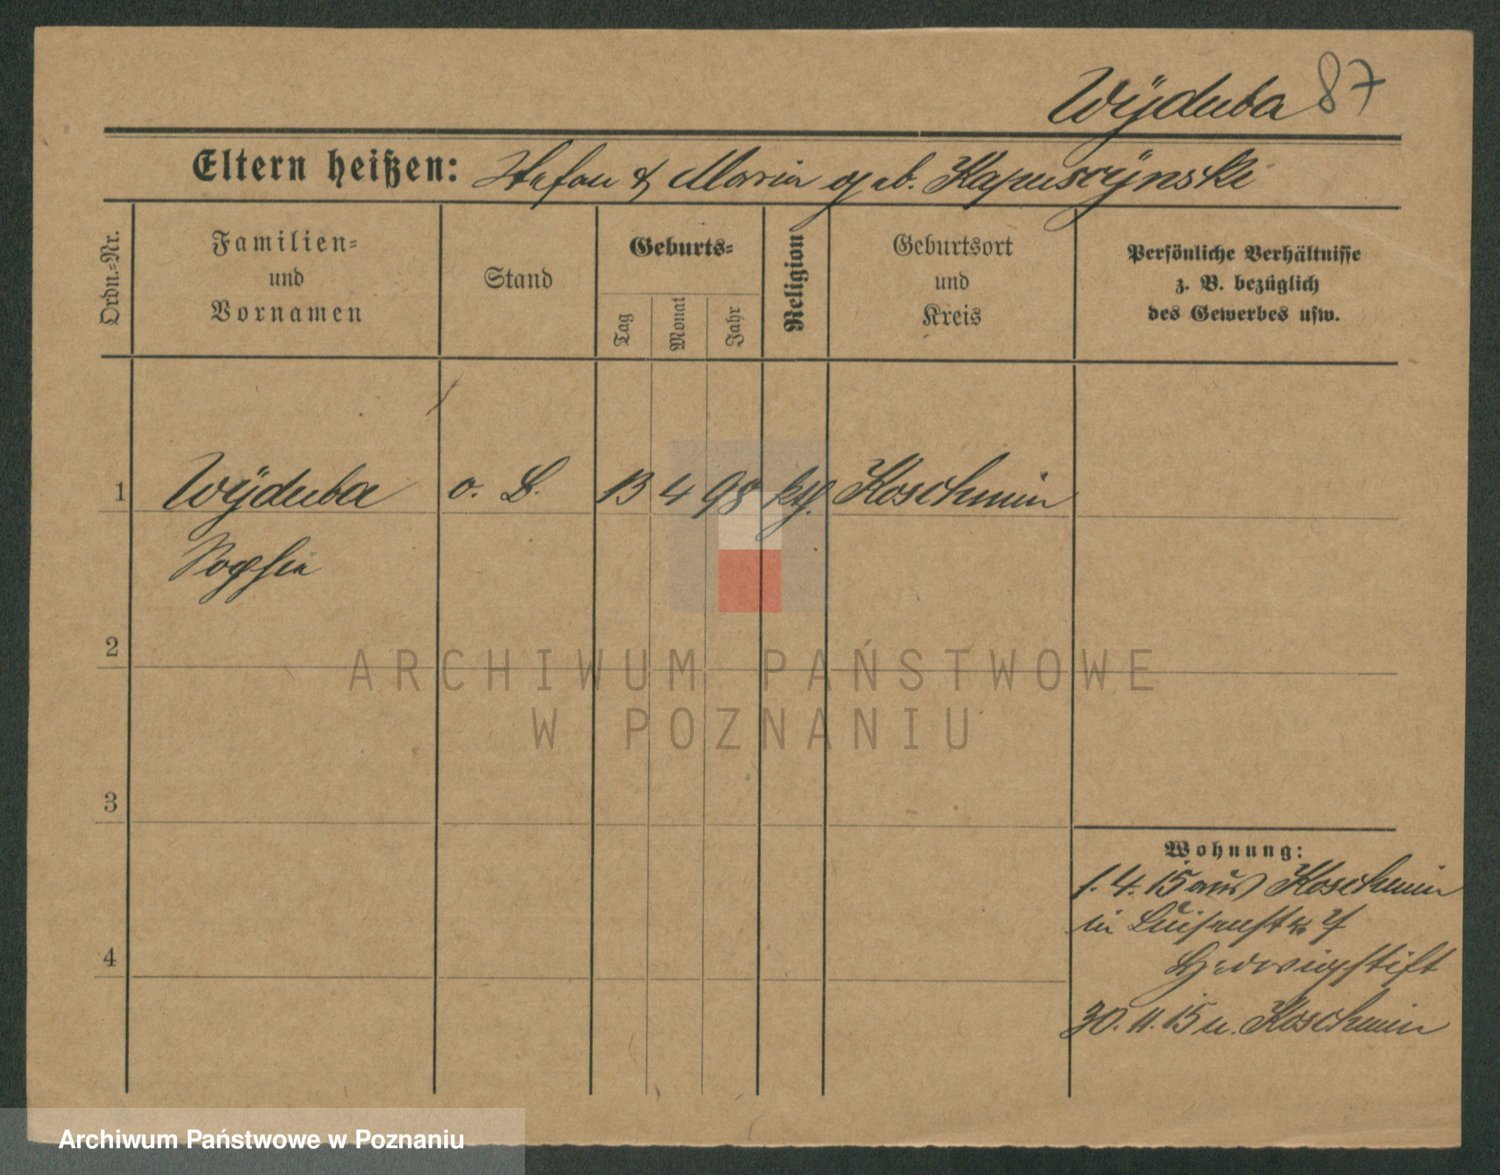 Wÿduba 87
Eltern heißen: Stefan & Maria geb. Kapuscÿnski
Ordn.=Nr.
Familien=
und
Vornamen
Stand
Geburts=
Tag
Monat
Jahr
Religion
Geburtsort
und
Kreis
Persönliche Verhältnisse
z. B. bezüglich
des Gewerbes usw.
1 Wÿduba o. B. 13 4 98 kth. Koschmin
Sophia
2
3
4
Wohnung:
1. 4. 15 aus Koschmin
in Luisenstr
Hedwigstift
30. 11. 15 n. Koschmin
ARCHIWUM PAŃSTWOWE
W POZNANIU
Archiwum Państwowe w Poznaniu